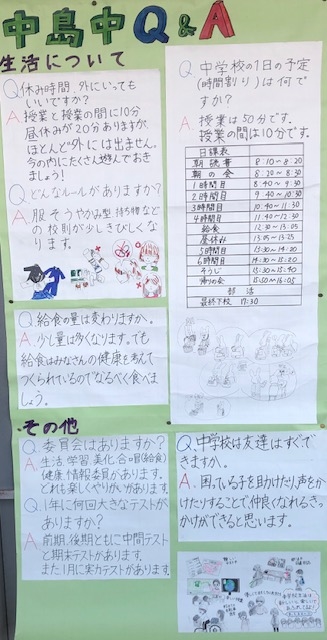 中島中Q&A
生活について
Q.休み時間、外にいっても
いいですか？
A.授業と授業の間に10分
昼休みが20分ありますが、
ほとんど外には出ません。
今の内にたくさん遊んでおき
ましょう！
Q.どんなルールがありますか？
A.服そうやかみ型、持ち物など
の校則が少しきびしくな
ります。
Q.給食の量は変わりますか。
A.少し量は多くなります。でも
給食はみなさんの健康を考えて
つくられているのでなるべく食べま
しょう。
Q.中学校の1日の予定
(時間割り)は何で
すか？
A.授業は50分です。
授業の間は10分です。
日課表
朝読書 8:10~8:20
朝の会 8:20~8:30
1時間目 8:40~9:30
2時間目 9:40~10:30
3時間目 10:40~11:30
4時間目 11:40~12:30
給食 12:30~13:05
昼休み 13:05~13:25
5時間目 13:30~14:20
6時間目 14:30~15:20
そうじ 15:30~15:40
帰りの会 15:50~16:05
部活
最終下校 17:30
その他
Q.委員会はありますか？
A.生活、学習、美化、合唱(給食)
健康、情報委員があります。
どれも楽しくやりがいがあります。
Q.1年に何回大きなテストが
ありますか？
A.前期、後期ともに中間テスト
と期末テストがあります。
また1月に実力テストがあります。
Q.中学校は友達はすぐで
きますか。
A.困っている子を助けたり声をか
けたりすることで仲良くなれるきっ
かけができると思います。